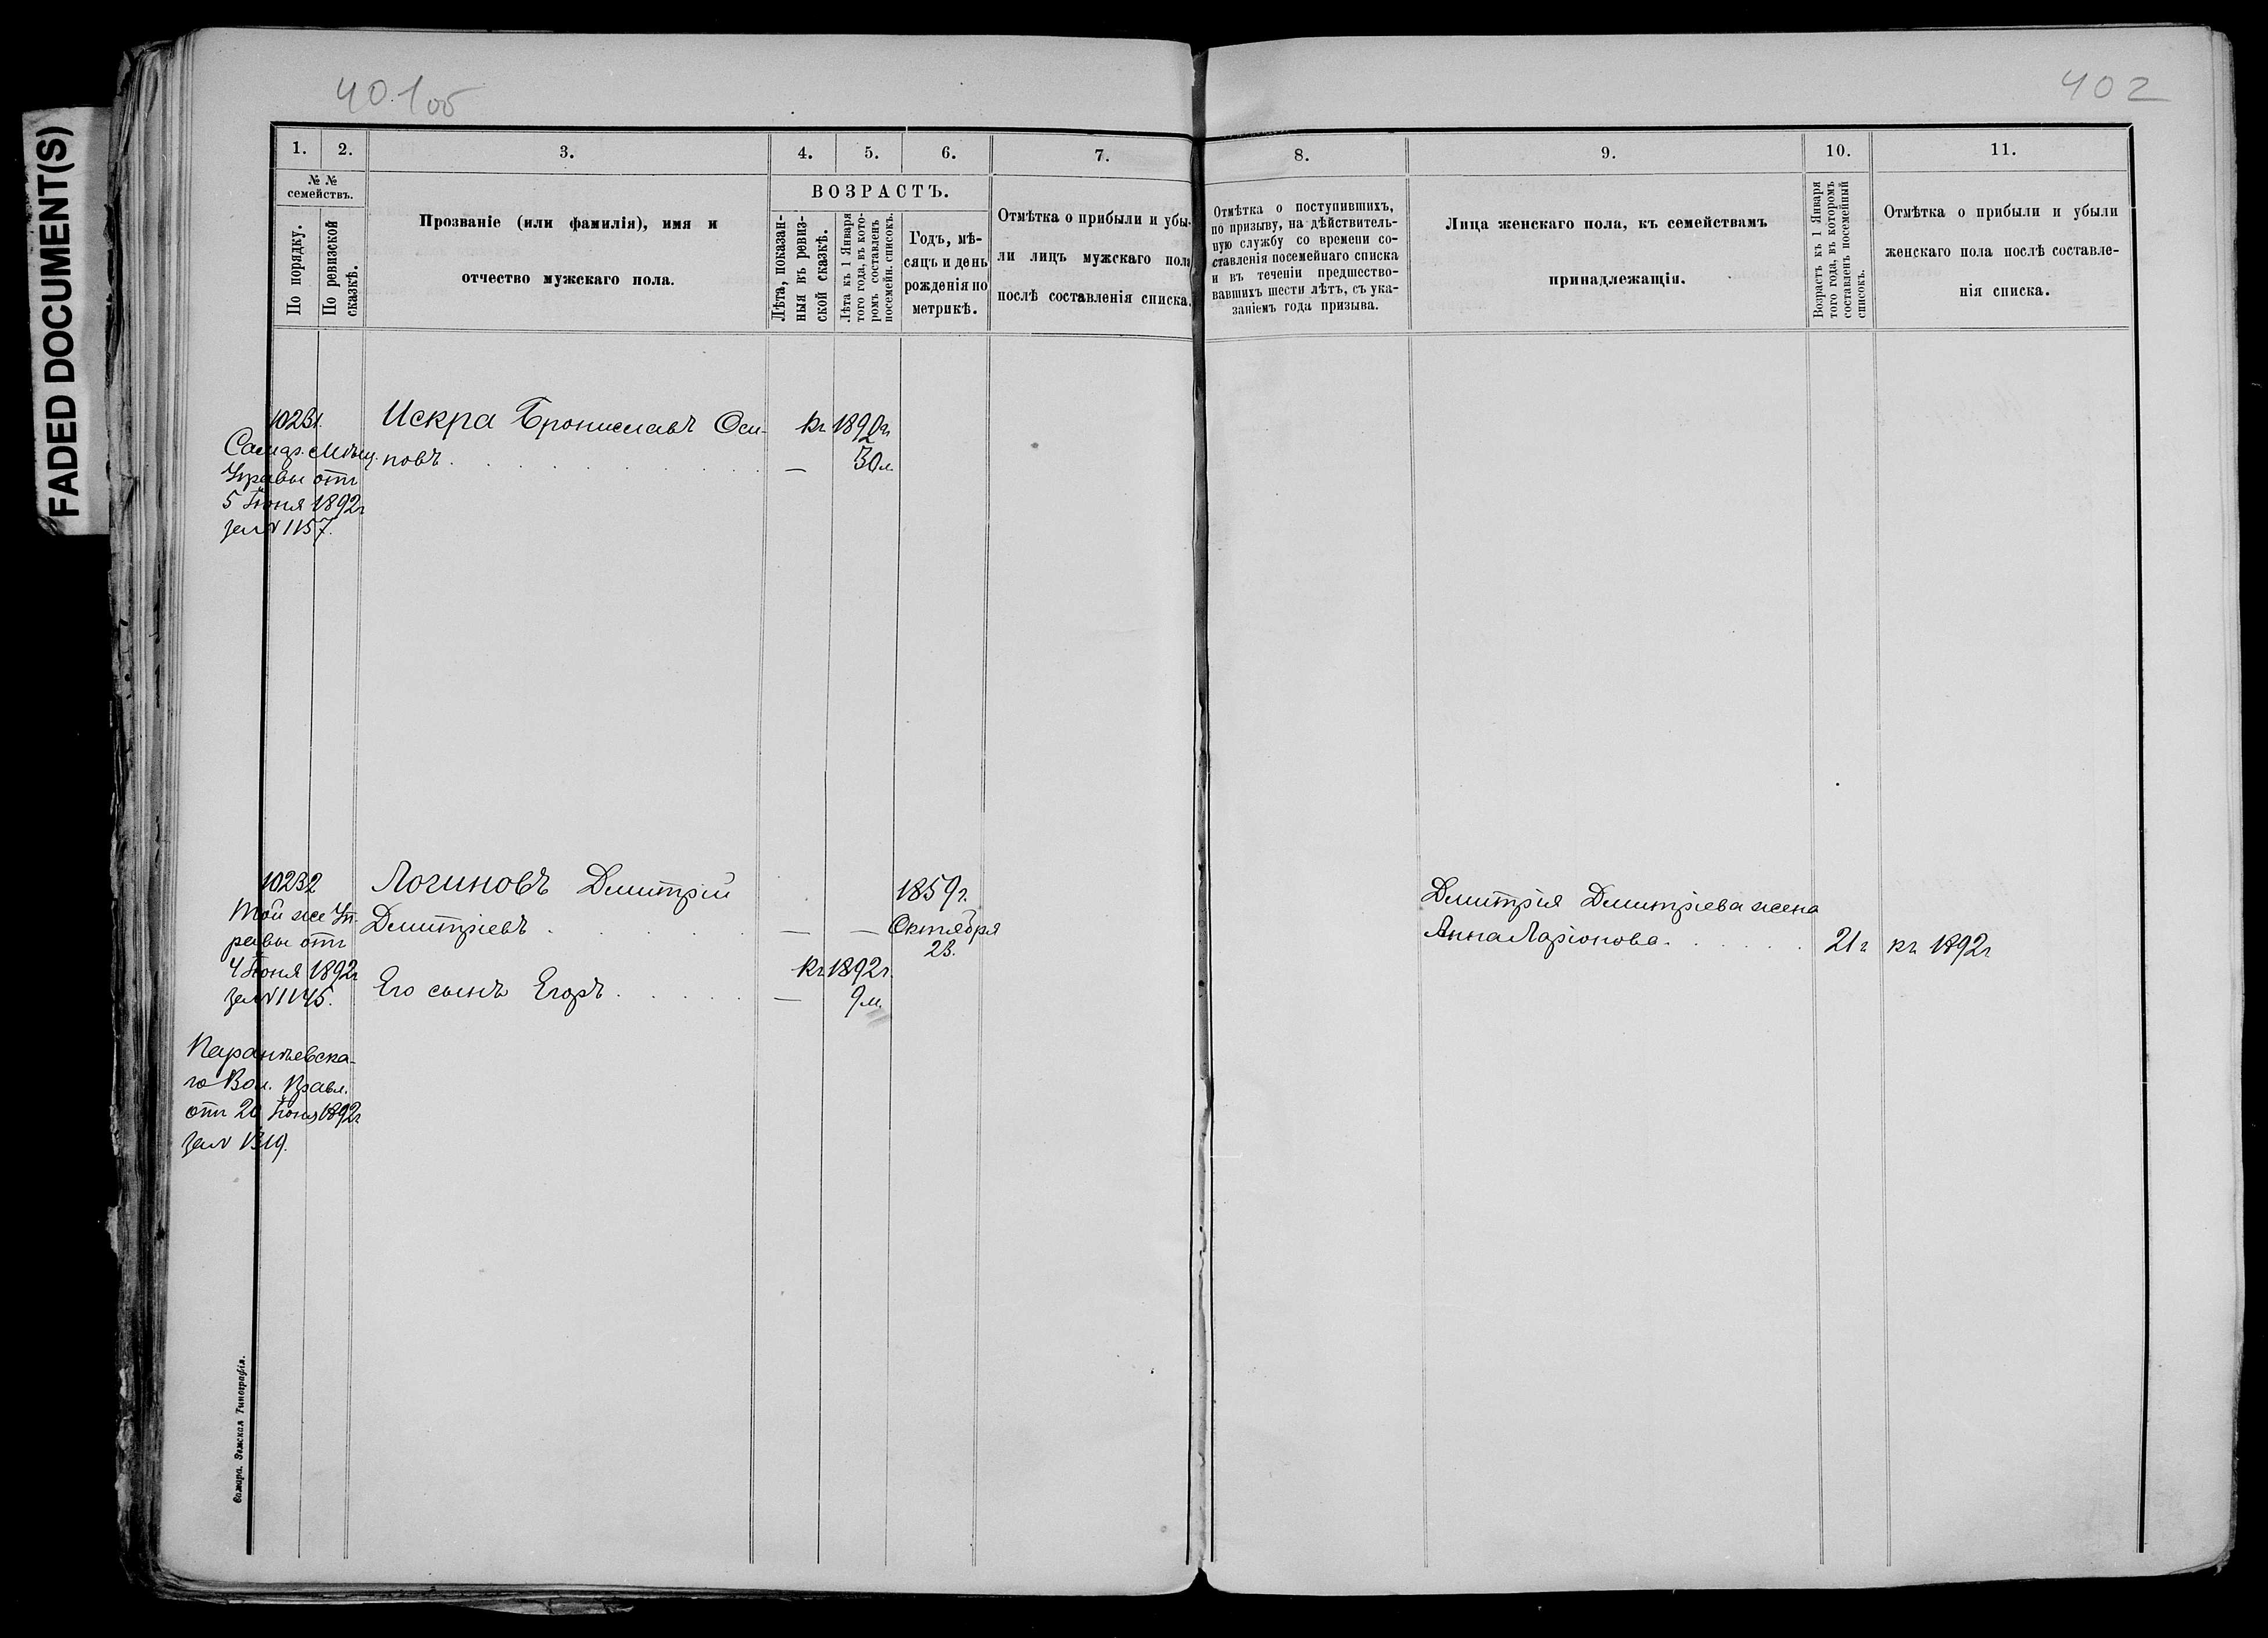 FADED DOCUMENT(S)
401об
402
1.
2.
3.
4.
5.
6.
7.
8.
9.
10.
11.
№ №
семействъ.
По порядку.
По ревизской
сказкѣ.
Прозваніе (или фамилія), имя и
отчество мужскаго пола.
ВОЗРАСТЪ.
Лѣта, показан-
ныя въ ревиз-
ской сказкѣ.
Лѣта къ 1 Января
того года, въ кото-
ромъ составленъ
посемейн. списокъ.
Годъ, мѣ-
сяцъ и день
рожденія по
метрикѣ.
Отмѣтка о прибыли и убы-
ли лицъ мужскаго пола
послѣ составленія списка.
Отмѣтка о поступившихъ,
по призыву, на дѣйствитель-
ную службу со времени со-
ставленія посемейнаго списка
и въ теченіи предшество-
вавшихъ шести лѣтъ, съ ука-
заніемъ года призыва.
Лица женскаго пола, къ семействамъ
принадлежащія.
Возрастъ къ 1 Января
того года, въ которомъ
составленъ посемейный
списокъ.
Отмѣтка о прибыли и убыли
женскаго пола послѣ составле-
нія списка.
10231.
Искра Брониславъ Оси-
повъ
къ 1892г
— 30л.
Управы отъ
5 Іюня 1892г
за № 1157.
10232
Той же Уп-
равы отъ
4 Іюня 1892г
за № 1145.
Логиновъ Дмитрій
Дмитріевъ
— —
1859г.
Октября
23.
Его сынъ Егоръ
къ 1892г.
— 9м.
Вол. Правл.
отъ 20 Іюня 1892г
за № 1319.
Дмитрія Дмитріева жена
Анна Ларіонова
21г къ 1892г
Самара. Земская Типографія.